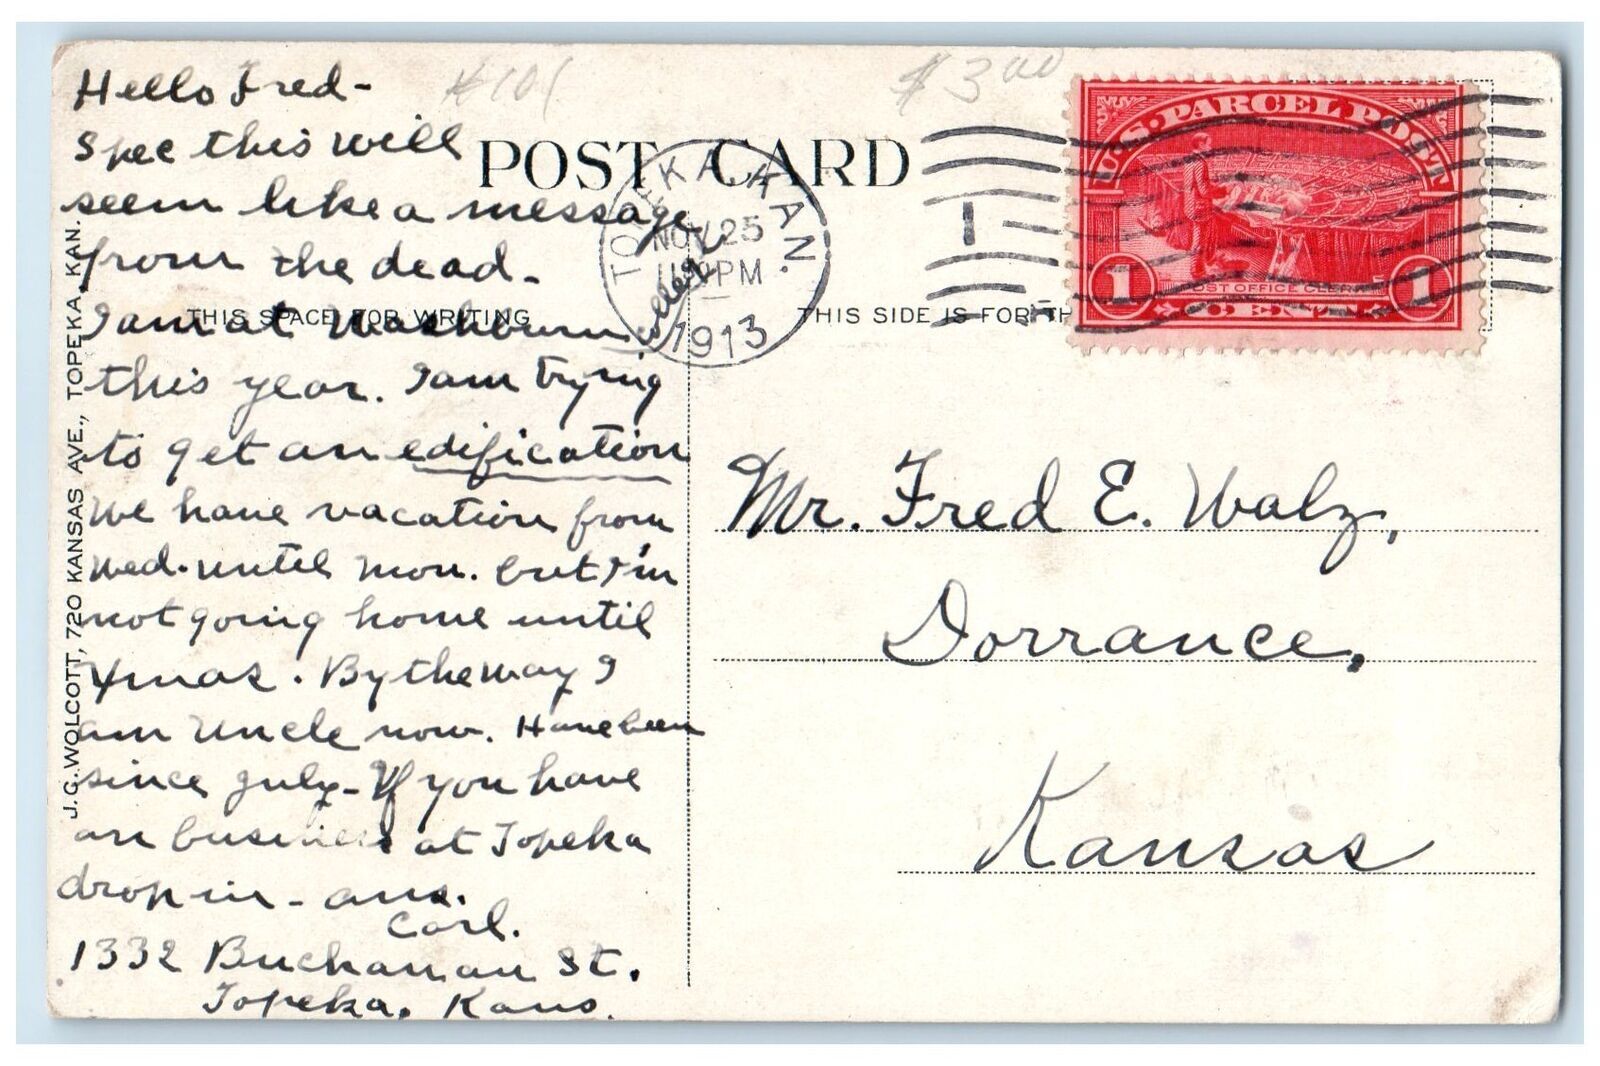 Hello Fred-
Spec this will
seem like a message
from the dead-
I am at Washburn College
this year. I am trying
to get an edification
We have vacation from
Wed. until Mon. but I'm
not going home until
Xmas. By the way I
am Uncle now. Have been
since July- If you have
an business at Topeka
drop in- ans.
Carl.
1332 Buchanan St.
Topeka, Kans.
#101
$3.00
POST CARD
THIS SPACE FOR WRITING
THIS SIDE IS FOR TH
J.G. WOLCOTT, 720 KANSAS AVE., TOPEKA, KAN.
TOPEKA, KAN.
NOV 25
PM
1913
U.S. PARCEL POST
POST OFFICE CLERK
1 CENT 1
Mr. Fred E. Walz,
Dorrance,
Kansas